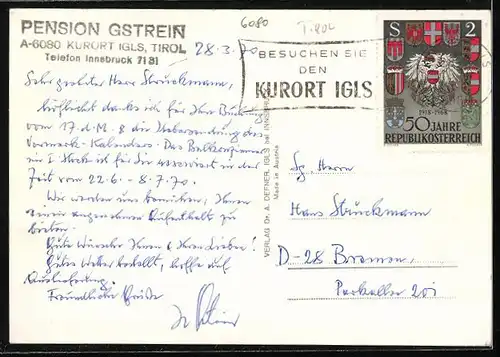 PENSION GSTREIN
A-6080 KURORT IGLS, TIROL
Telefon Innsbruck 7181
28.3.70
6080
TIROL
BESUCHEN SIE
DEN
KURORT IGLS
S 2
1918-1968
50 JAHRE
REPUBLIK ÖSTERREICH
Sehr geehrter Herr Struckmann,
höflichst danke ich für Ihre Buchung
vom 17. d. M. & die Uebersendung des
Vormerk-Kalenders. Das Balkonzimmer
im I Stock ist für Sie reserviert in der
Zeit vom 22.6. - 8.7.70.
Wir werden uns bemühen, Ihnen
einen angenehmen Aufenthalt zu
bieten.
Gute Wünsche Ihnen
Gutes Wetter bestellt, hoffe auf
Auslieferung.
Freundliche Grüße
VERLAG Dr. A. DEFNER, IGLS bei INNSBRUCK
Made in Austria
Herrn
Hans Struckmann
D-28 Bremen
Parkallee 201